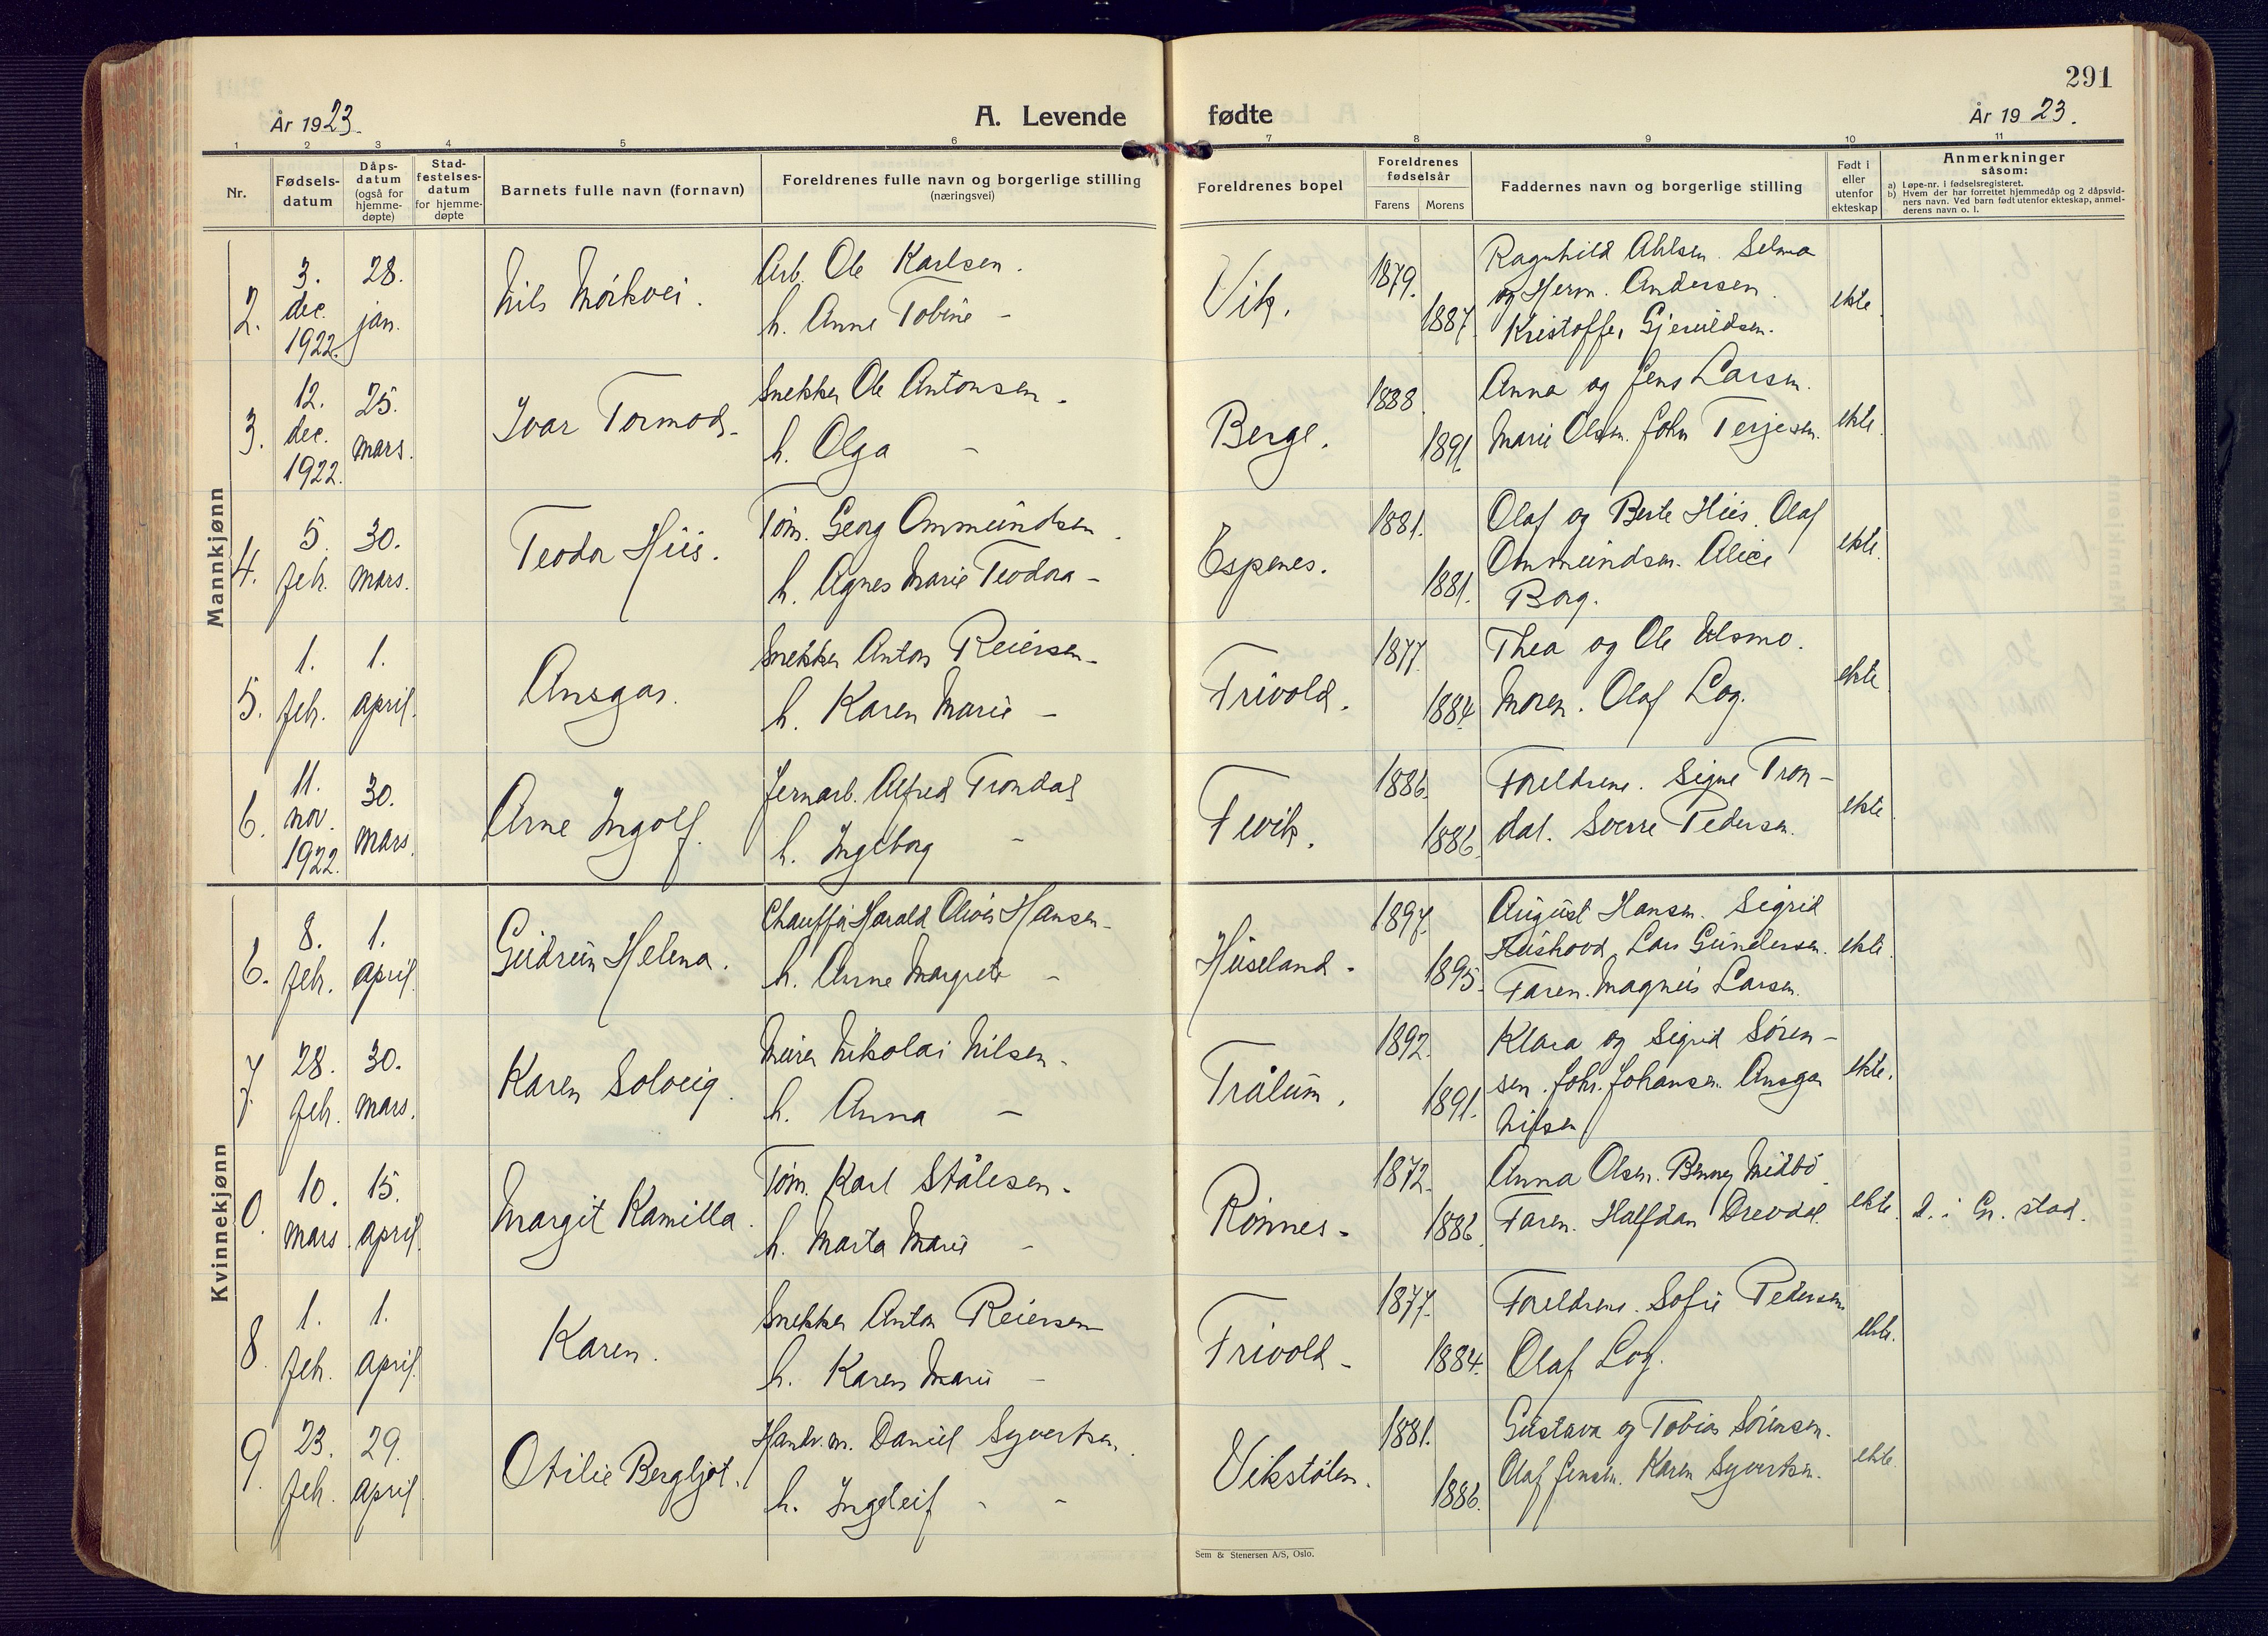 291
År 1923.
A. Levende
fødte
År 1923.
1 2 3 4 5 6 7 8 9 10 11
Nr.
Fødsels-
datum
Dåps-
datum
(også for
hjemme-
døpte)
Stad-
festelses-
datum
for hjemme-
døpte
Barnets fulle navn (fornavn)
Foreldrenes fulle navn og borgerlige stilling
(næringsvei)
Foreldrenes bopel
Foreldrenes
fødselsår
Farens Morens
Faddernes navn og borgerlige stilling
Født i
eller
utenfor
ekteskap
Anmerkninger
såsom:
a) Løpe-nr. i fødselsregisteret.
b) Hvem der har forrettet hjemmedåp og 2 dåpsvid-
ners navn. Ved barn født utenfor ekteskap, anmel-
derens navn o. l.
Mannkjønn
2.
3.
dec.
1922.
28.
jan.
Nils Mörkvei.
Arb. Ole Karlsen.
h. Anne Tobine -
Vik.
1879.
1887.
Ragnhild Ahlsen. Selma
og Herm. Andersen.
Kristoffer Gjeruldsen.
ekte.
3.
12.
dec.
1922.
25.
mars.
Ivar Tormod.
Snekker Ole Antonsen.
h. Olga -
Berge.
1888
1891.
Anna og Jens Larsen.
Marie Olsen. John Terjesen.
ekte.
4.
5.
feb.
30.
mars.
Teodor Hiis.
Töm. Georg Ommundsen.
h. Agnes Marie Teodora -
Espenes.
1881.
1881.
Olaf og Berte Hiis. Olaf
Ommundsen. Alice
Borg.
ekte.
5.
1.
feb.
1.
april.
Ansgar.
Snekker Anton Reiersen -
h. Karen Marie -
Frivold.
1877.
1884.
Thea og Ole
Moren. Olaf Log.
ekte
6.
11.
nov.
1922.
30.
mars.
Arne Ingolf.
Jernarb. Alfred Trondal
h. Ingeborg -
Fevik.
1886.
1886.
Foreldrene. Signe Tron-
dal. Sverre Pedersen.
ekte
Kvinnekjønn
6.
8.
feb.
1.
april.
Gudrun Helena.
Chaufför Harald Oliver Hansen -
h. Anne Margrete -
Huseland.
1897.
1895.
August Hansen. Sigrid
Lars Gundersen.
Faren. Magnus Larsen.
ekte.
7.
28.
feb.
30.
mars.
Karen Solveig.
Murer Nikolai Nilsen -
h. Anna -
Trålum.
1892.
1891.
Klara og Sigrid Sören-
sen. Joh. Johansen. Ansgar
Nilsen
ekte.
0.
10.
mars.
15.
april.
Margit Kamilla.
Töm. Karl Stålesen -
h. Marta Marie -
Rönnes -
1872.
1886.
Anna Olsen. Benny Midbö.
Faren. Halfdan Drevdal.
ekte.
d. i Gr. stad.
8.
1.
feb.
1.
april.
Karen.
Snekker Anton Reiersen
h. Karen Marie -
Frivold -
1877.
1884.
Foreldrene. Sofie Pedersen
Olaf Log.
ekte.
9.
23.
feb.
29.
april
Otilie Bergljot.
Handv.m. Daniel Syvertsen.
h. Ingeleif - -
Vikstölen.
1881.
1886.
Gustava og Tobias Sörensen.
Olaf Jensen. Karen Syvertsen.
ekte.
Sem & Stenersen A/S, Oslo.